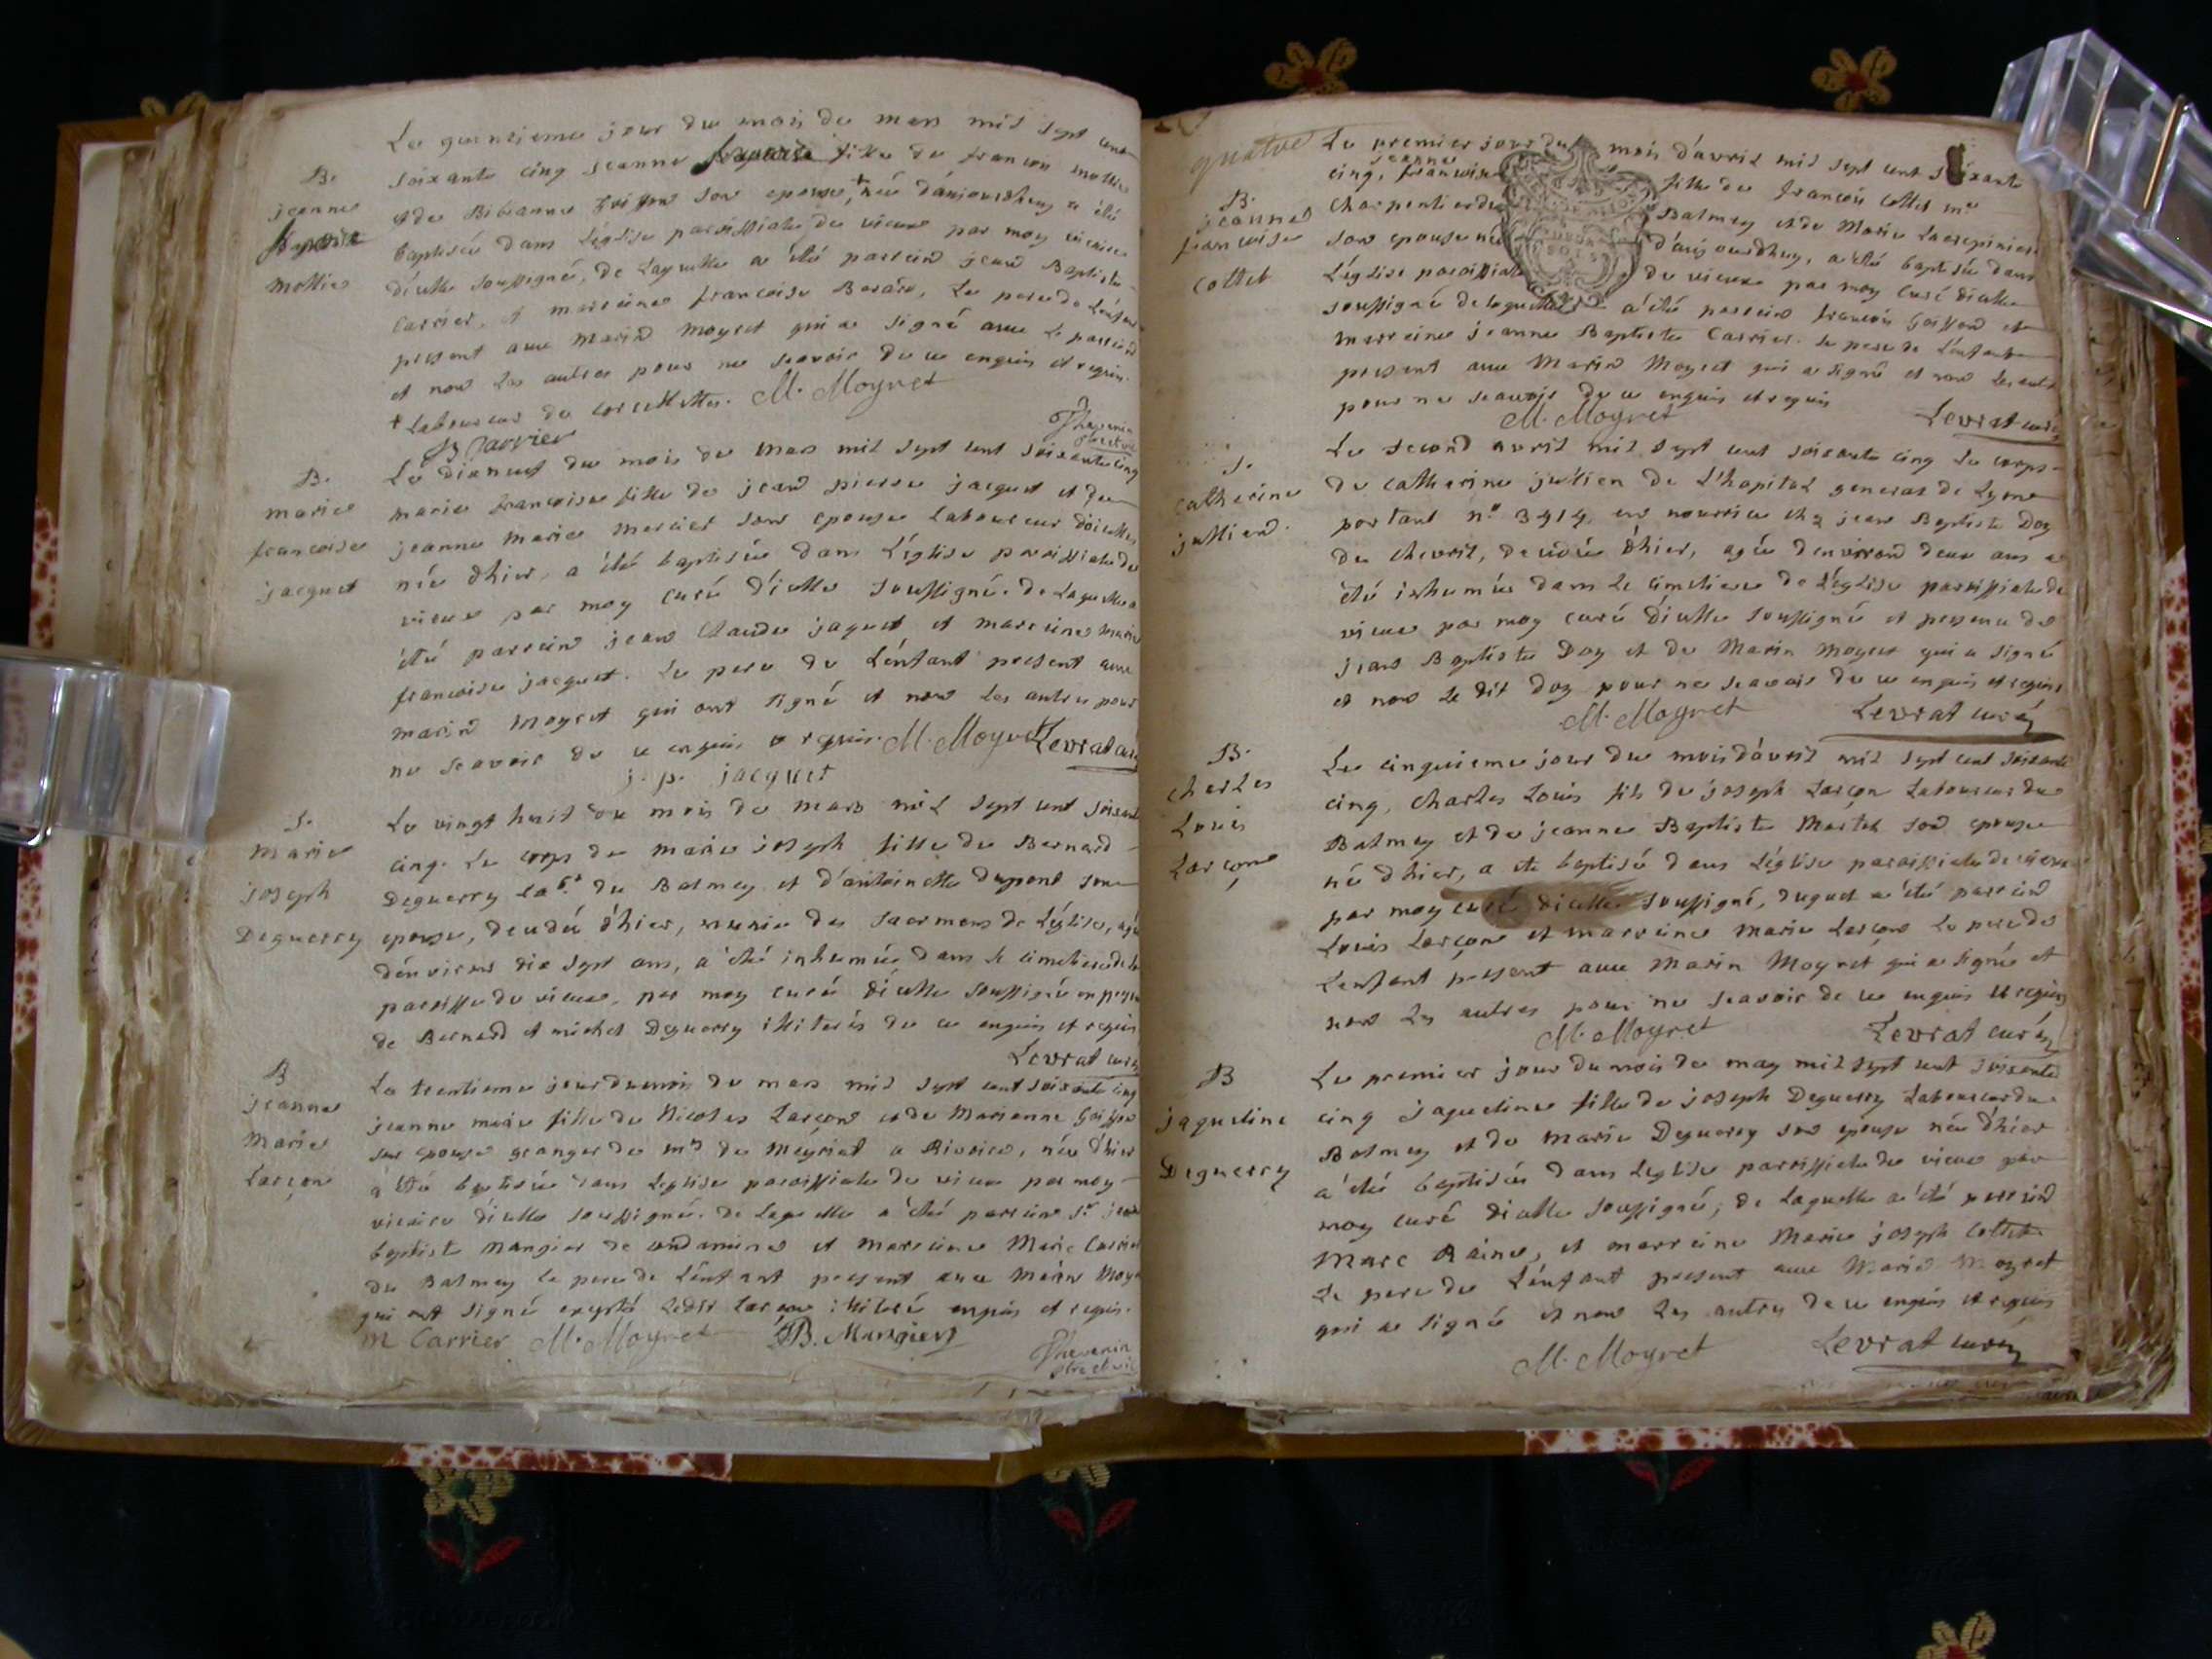 Le quinzieme jour du mois de mars mil sept cent
B.
jeanne
baptiste
mottier
soixante cinq jeanne baptiste fille de francois mottier
et de Bibeanne son epouse, + née d'aujourdhuy a été
baptisée dans L'église paroissiale de vieux par moy vicaire
d'icelle soussigné, de Laquelle a été parrein jean Baptiste
Carrier, et marreine francoise Berard, Le pere de L'enfant
present avec marin moyret qui a signé avec Le parrein
et non Les autres pour ne scavoir de ce enquis et requis.
+ Laboureur de corcelettes. M. Moyret
JB Carrier
Thevenin
ptre et vic
B.
marie
francoise
jacquet
Le dixneuf du mois de mars mil sept cent soixante cinq
marie francoise fille de jean pierre jacquet et de
jeanne marie mercier son epouse Laboureur d'icelle
née d'hier, a été baptisée dans L'église paroissiale de
vieux par moy curé d'icelle soussigné. de Laquelle a
été parrein jean claude jaquet et marreine marie
francoise jacquet. Le pere de L'enfant present avec
marin moyret qui ont signé et non Les autres pour
ne scavoir de ce enquis et requis. M. Moyret Levrat curé
j. p. jacquet
S.
Marie
joseph
Deguerry
Le vingt huit du mois de mars mil sept cent soixante
cinq. Le corps de marie joseph fille de Bernard
Deguerry lab.r du Balmey et d'antoinette dupont son
epouse, decedé d'hier, munie des sacremens de L'église, agé
d'environ dix sept ans, a été inhumée dans le cimetiere de la
paroisse de vieux, par moy curé d'icelle soussigné en presence
de Bernard et michel Deguerry illiterés de ce enquis et requis
Levrat curé
B
jeanne
Marie
Larçon
Le trentieme jour du mois de mars mil sept cent soixante cinq
jeanne marie fille de Nicolas Larçon et de Marianne Goiffon
son epouse granger de mr de Meyriat a Riviere, née d'hier
a été baptisée dans Leglise paroissiale de vieux par moy
vicaire d'icelle soussigné. de Laquelle a été parrein sr jean
baptiste Mangier de condamine et marreine Marie Carrier
du Balmey le pere de L'enfant present avec Marin Moyret
qui ont signé excepté Ledit Larçon illiteré enquis et requis.
M Carrier M. Moyret JB. Mangier
Thevenin
ptre et vic
quatre
B.
jeanne
francoise
Collet
Le premier jour du mois d'avril mil sept cent soixante
cinq, jeanne francoise fille de francois collet me
Charpentier du Balmey et de Marie
son epouse née d'aujourdhuy, a été baptisée dans
L'église paroissiale de vieux par moy curé d'icelle
soussigné de laquelle a été parrein francois Goiffon et
marreine jeanne Baptiste Carrier. le pere de L'enfant
present avec Marin Moyret qui a signé et non les autres
pour ne scavoir de ce enquis et requis
M. Moyret Levrat curé
S.
catherine
jullien.
Le second avril mil sept cent soixante cinq Le corps
de catherine jullien de L'hopital general de Lyon
portant n.o 3419 en nourrice chez jean Baptiste Doz
de chevril, decedée d'hier, agée d'environ deux ans a
été inhumée dans Le cimetiere de L'église paroissiale de
vieux par moy curé d'icelle soussigné et presence de
jean Baptiste Doz et de Marin Moyret qui a signé
et non Le dit Doz pour ne scavoir de ce enquis et requis
M. Moyret Levrat curé
B.
charles
Louis
Larçon
Le cinquieme jour du mois d'avril mil sept cent soixante
cinq, charles Louis fils de joseph Larçon Laboureur du
Balmey et de jeanne Baptiste Martel son epouse
né d'hier, a été baptisé dans L'église paroissiale de vieux
par moy curé d'icelle soussigné, duquel a été parrein
Louis Larçon et marreine marie Larçon Le pere de
L'enfant present avec Marin Moyret qui a signée et
non Les autres pour ne scavoir de ce enquis et requis
M. Moyret Levrat curé
B
jaqueline
Deguerry
Le premier jour du mois de may mil sept cent soixante
cinq jaqueline fille de joseph Deguerry Laboureur du
Balmey et de marie Deguerry son epouse née d'hier
a été baptisée dans Leglise paroissiale de vieux par
moy curé d'icelle soussigné; de Laquelle a été parrein
Marc Raine, et marreine Marie joseph Collet
Le pere de L'enfant present avec Marin Moyret
qui a signé et non Les autres de ce enquis et requis
M. Moyret Levrat curé